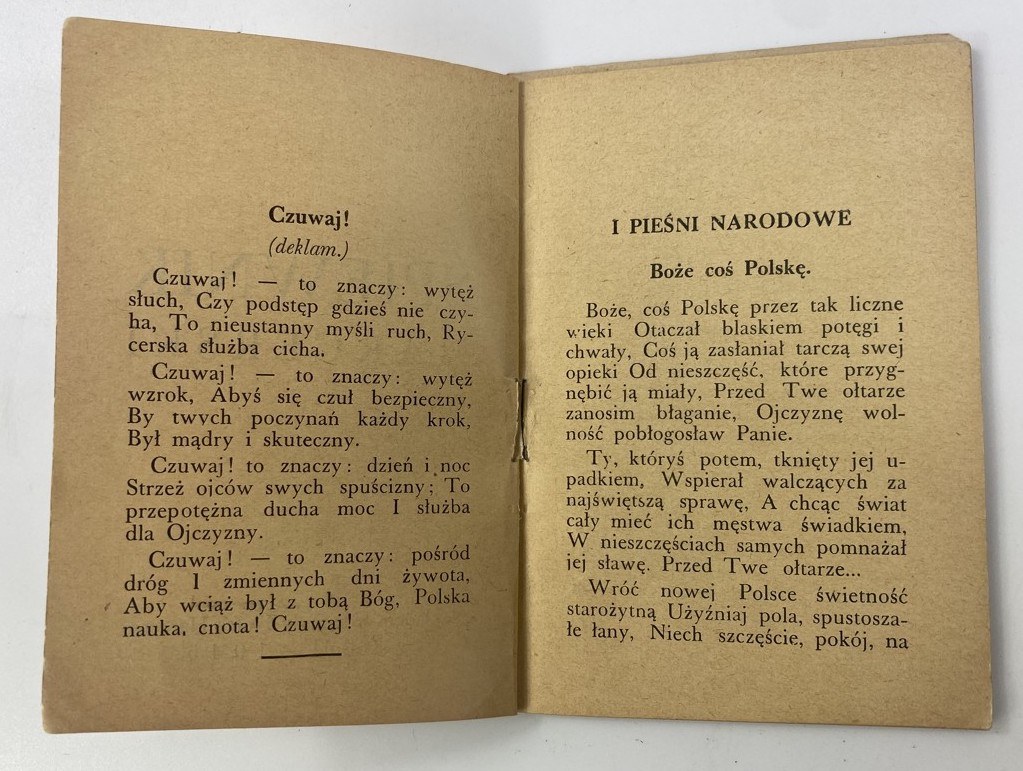 Czuwaj!
(deklam.)
Czuwaj! — to znaczy: wytęż
słuch, Czy podstęp gdzieś nie czy-
ha, To nieustanny myśli ruch, Ry-
cerska służba cicha.
Czuwaj! — to znaczy: wytęż
wzrok, Abyś się czuł bezpieczny,
By twych poczynań każdy krok,
Był mądry i skuteczny.
Czuwaj! to znaczy: dzień i noc
Strzeż ojców swych spuścizny; To
przepotężna ducha moc I służba
dla Ojczyzny.
Czuwaj! — to znaczy: pośród
dróg I zmiennych dni żywota,
Aby wciąż był z tobą Bóg, Polska
nauka, cnota! Czuwaj!
I PIEŚNI NARODOWE
Boże coś Polskę.
Boże, coś Polskę przez tak liczne
wieki Otaczał blaskiem potęgi i
chwały, Coś ją zasłaniał tarczą swej
opieki Od nieszczęść, które przyg-
nębić ją miały, Przed Twe ołtarze
zanosim błaganie, Ojczyznę wol-
ność pobłogosław Panie.
Ty, któryś potem, tknięty jej u-
padkiem, Wspierał walczących za
najświętszą sprawę, A chcąc świat
cały mieć ich męstwa świadkiem,
W nieszczęściach samych pomnażał
jej sławę. Przed Twe ołtarze...
Wróć nowej Polsce świetność
starożytną Użyźniaj pola, spustosza-
łe łany, Niech szczęście, pokój, na